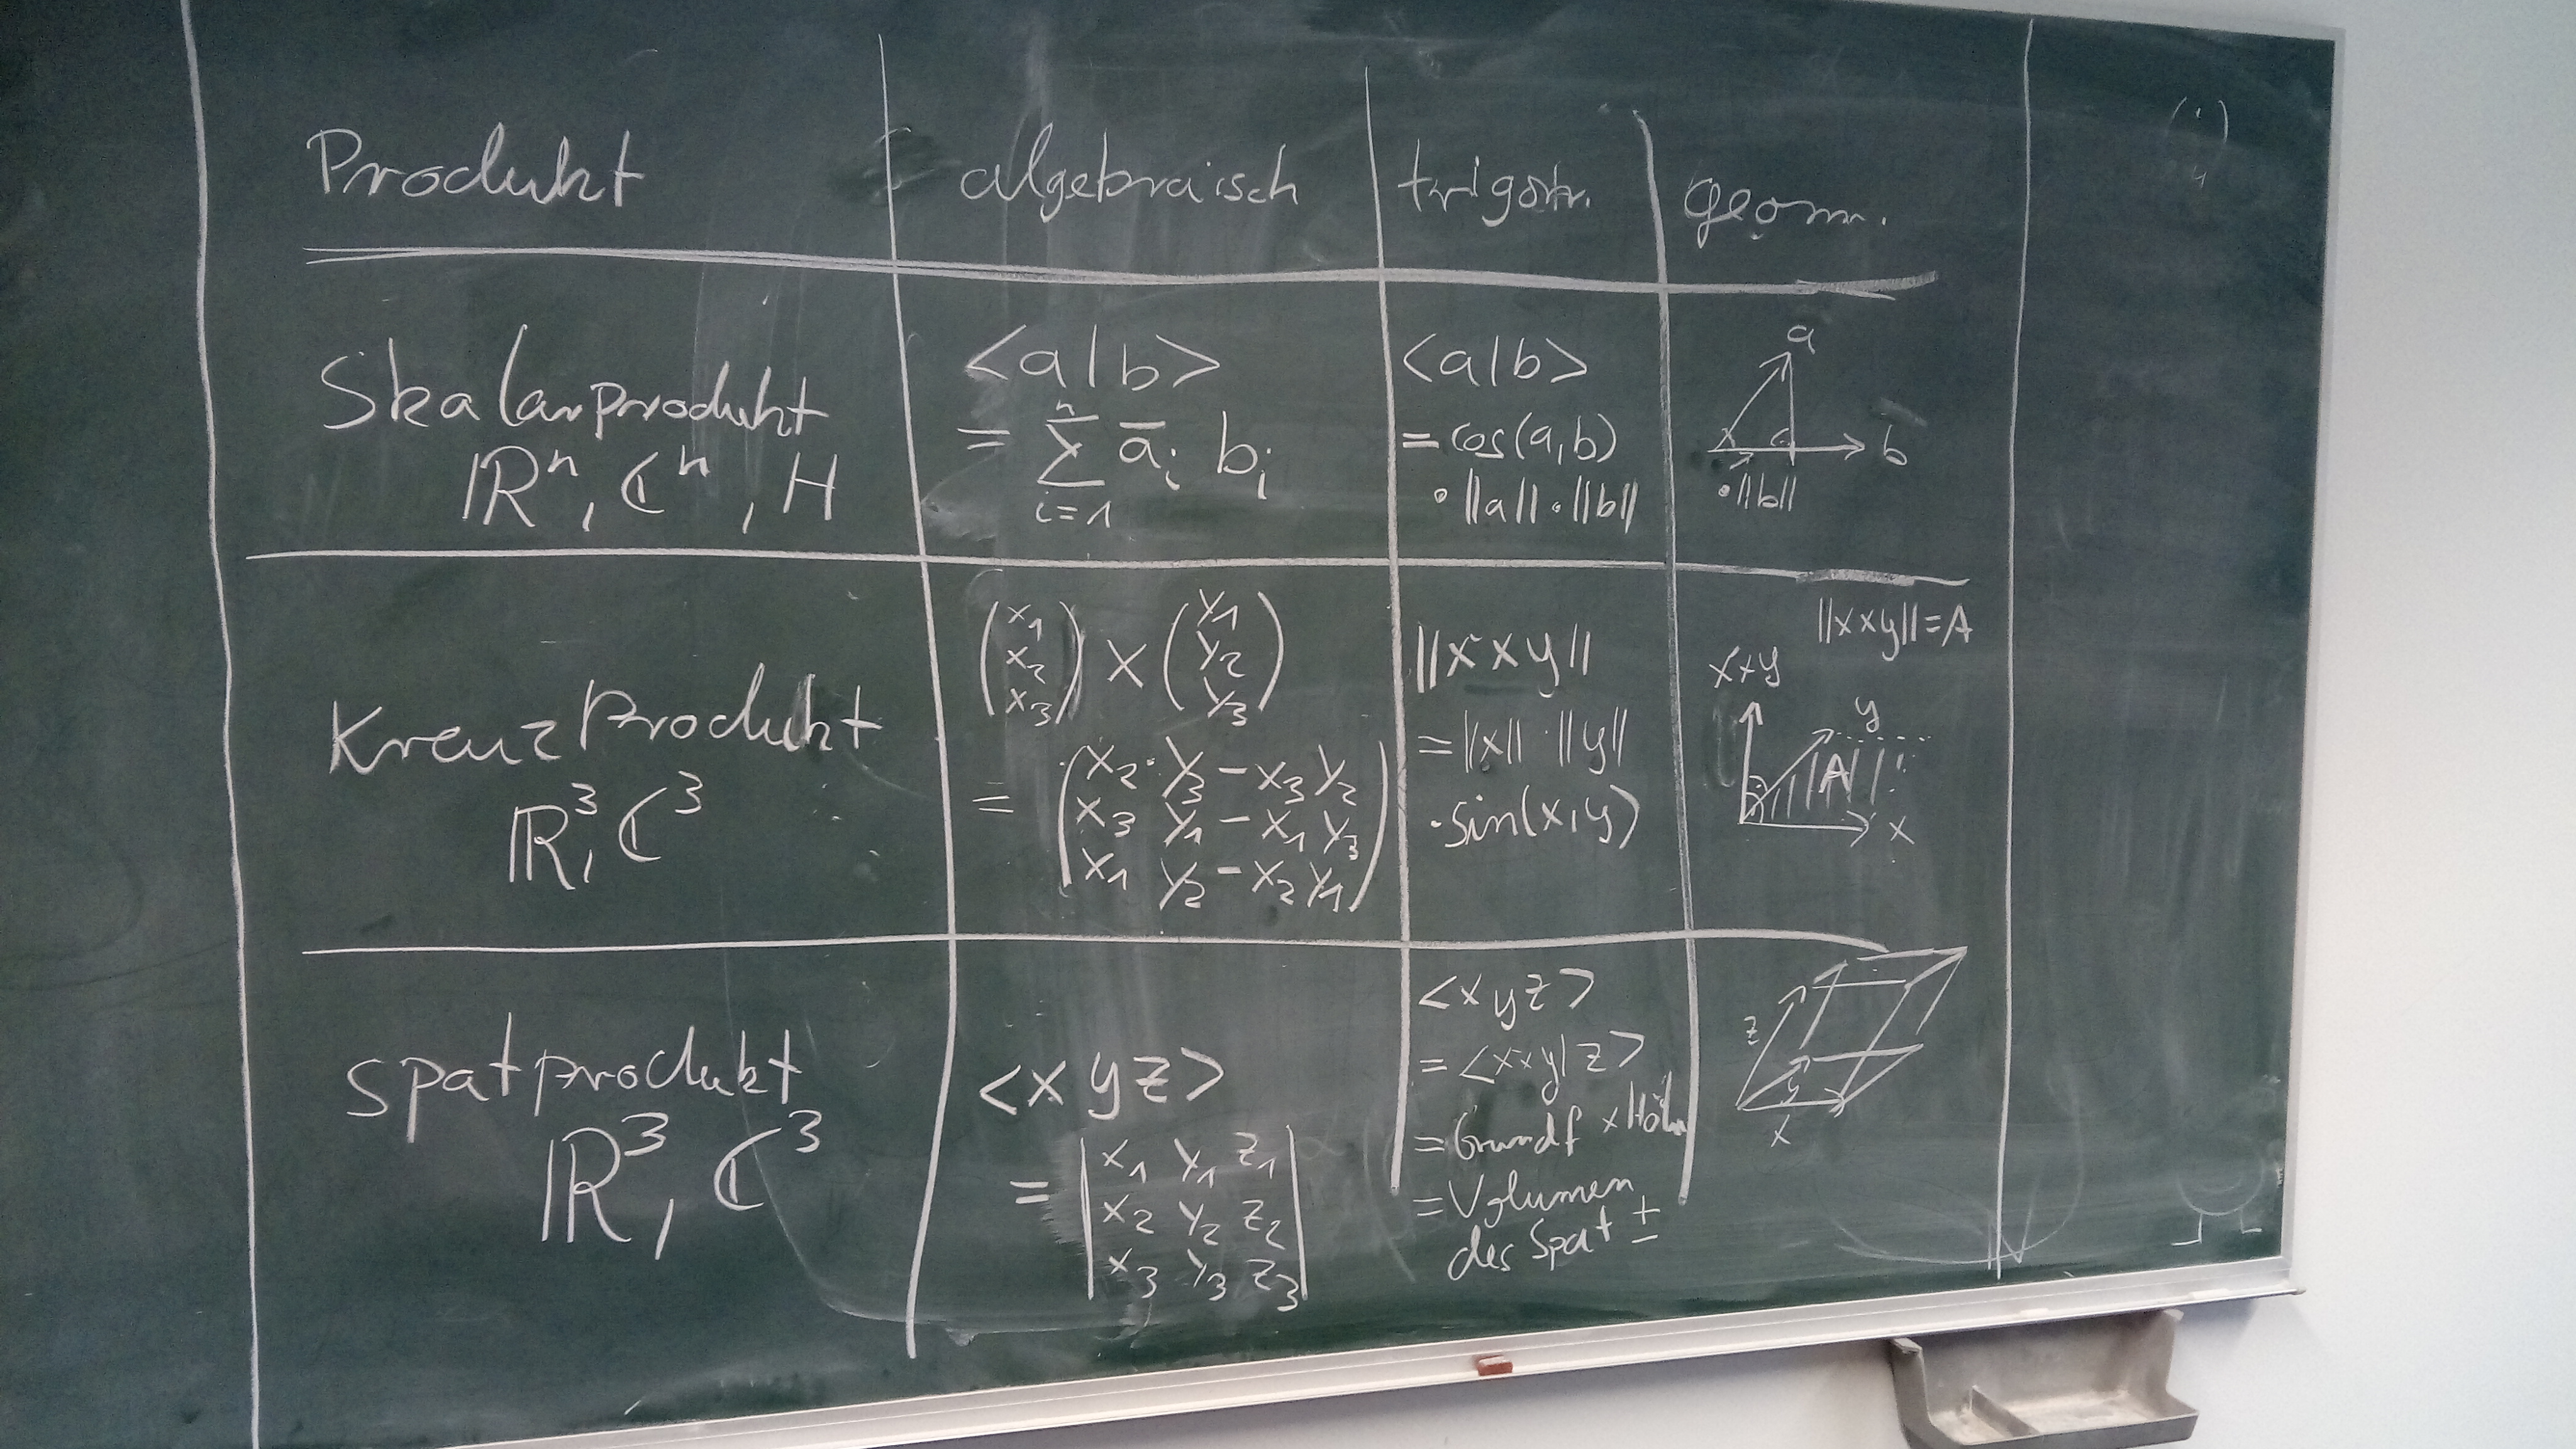 Produkt algebraisch trigon. geom.
Skalarprodukt
ℝⁿ, ℂⁿ, H
<a|b>
= ∑ᵢ₌₁ⁿ āᵢ bᵢ
<a|b>
= cos(a,b)
· ||a|| · ||b||
a
b
· ||b||
Kreuzprodukt
ℝ³, ℂ³
(x₁ x₂ x₃) × (y₁ y₂ y₃)
= (x₂ · y₃ − x₃ y₂
x₃ y₁ − x₁ y₃
x₁ y₂ − x₂ y₁)
||x × y||
= ||x|| · ||y||
· sin(x,y)
||x×y|| = A
x×y
y
A
x
Spatprodukt
ℝ³, ℂ³
<x y z>
= |x₁ y₁ z₁
x₂ y₂ z₂
x₃ y₃ z₃|
<x y z>
= <x×y|z>
= Grundf × Höhe
= Volumen
des Spat ±
z
y
x